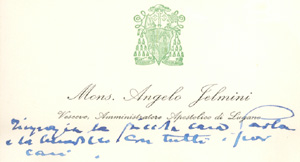 Mons. Angelo Jelmini
Vescovo, Amministratore Apostolico di Lugano
ringrazia la piccola cara Paola
e la benedice con tutti i suoi
cari.